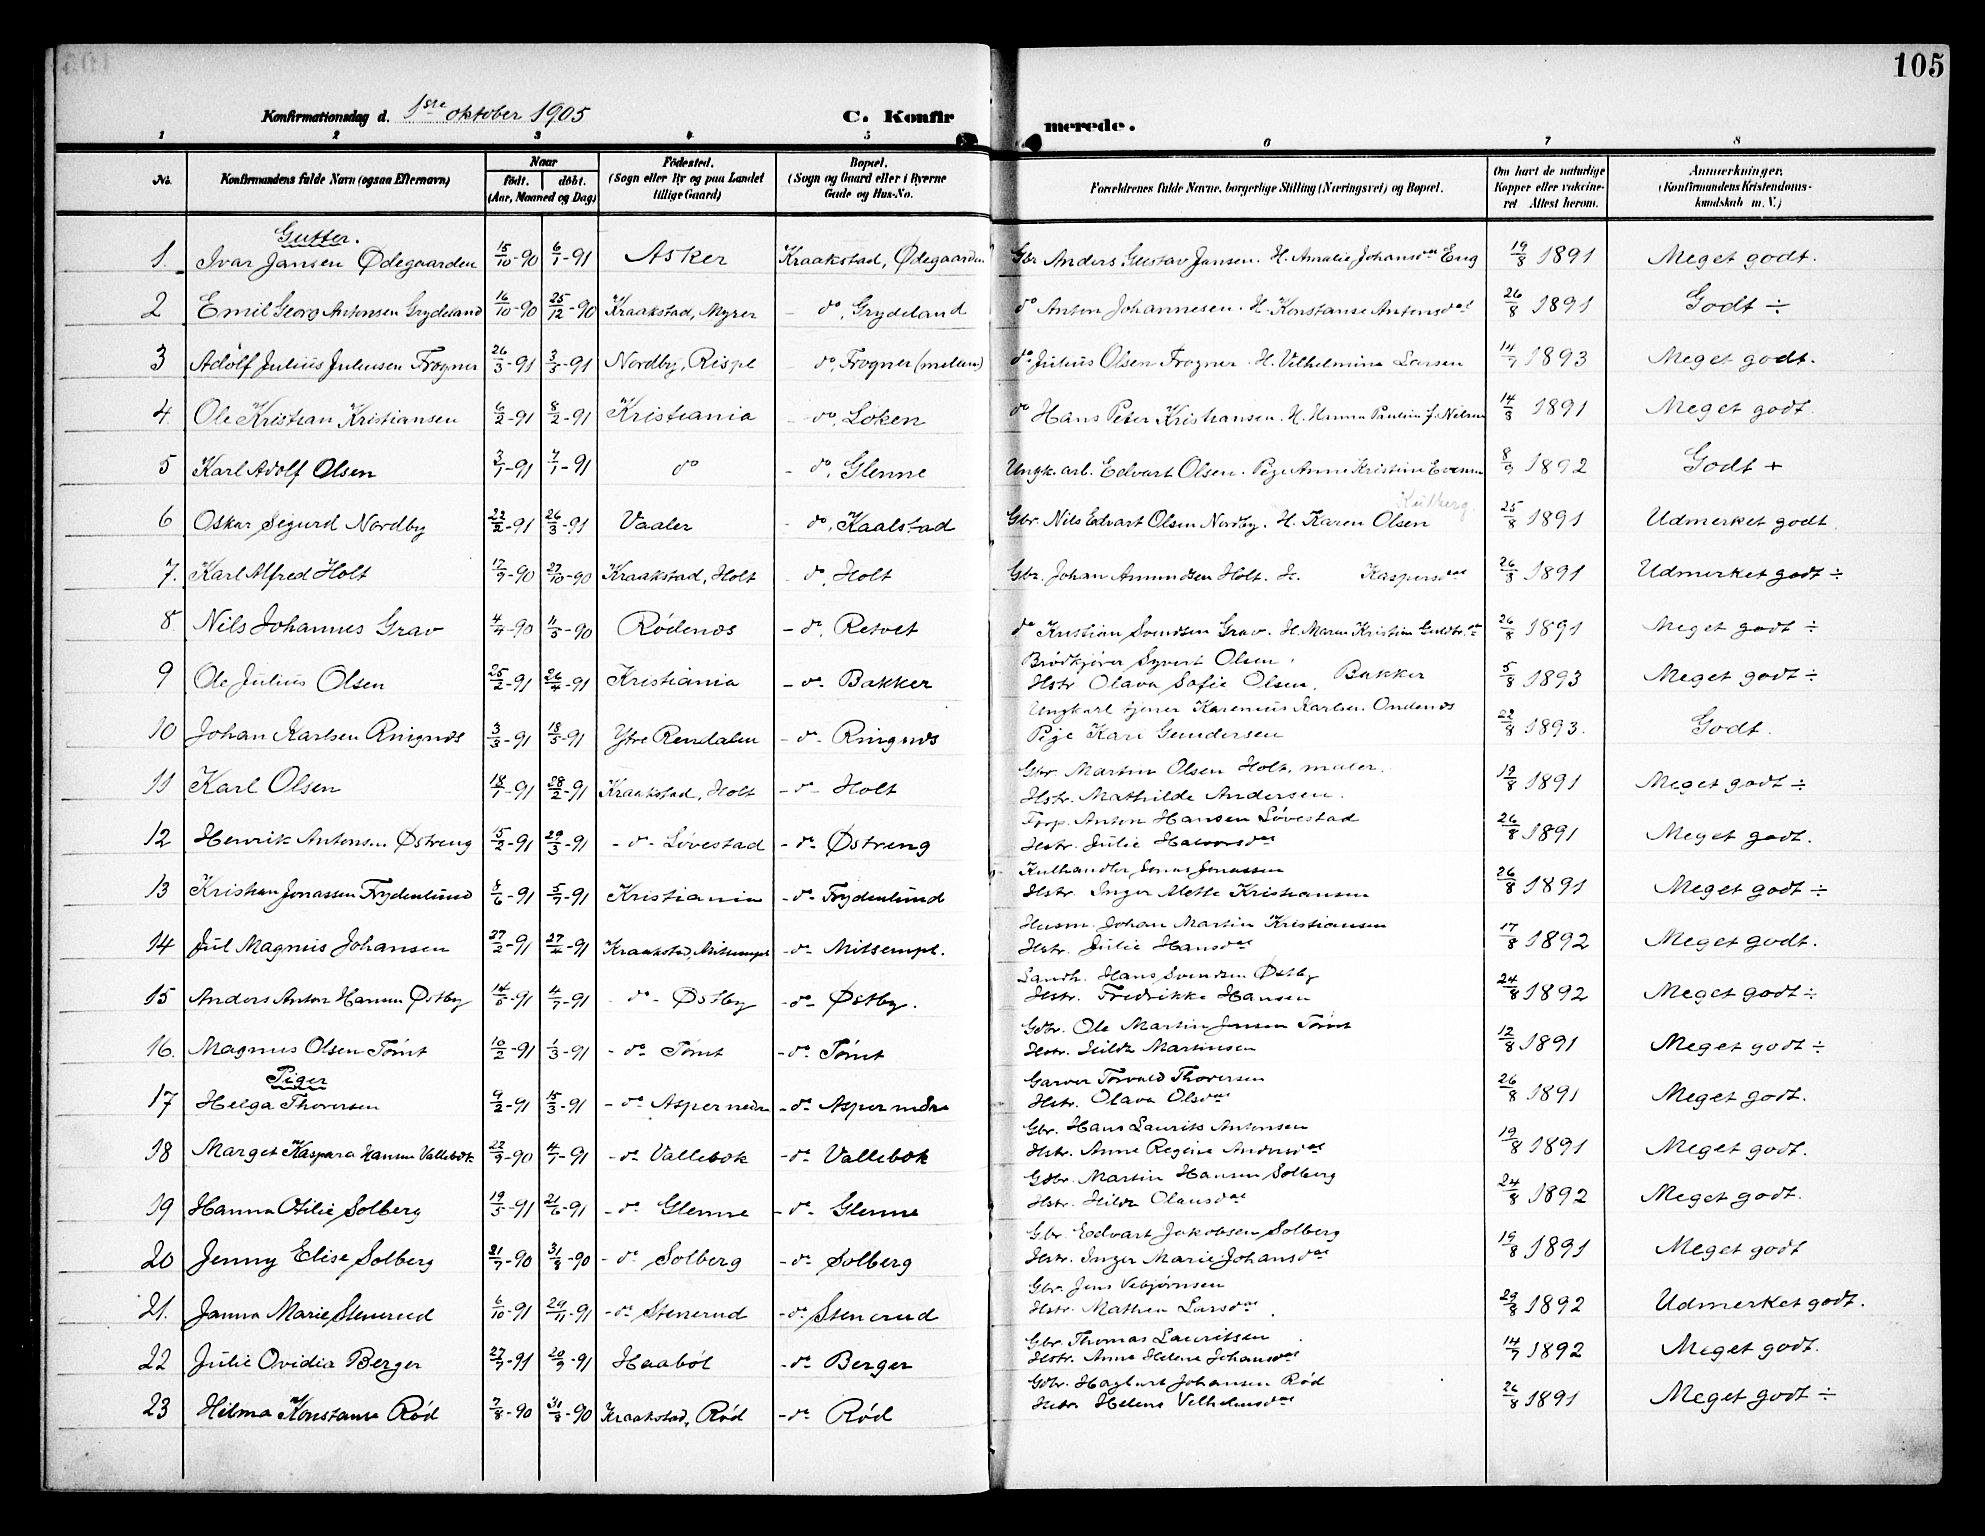 105
Konfirmationsdag d. 1ste oktober 1905
C. Konfirmerede.
1 2 3 4 5 6 7 8
No. | Konfirmandens fulde Navn (ogsaa Efternavn) | Naar født. døbt. (Aar, Maaned og Dag) | Fødested. (Sogn eller By og paa Landet tillige Gaard) | Bopæl. (Sogn og Gaard eller i Byerne Gade og Hus-No. | Forældrenes fulde Navne, borgerlige Stilling (Næringsvei) og Bopæl. | Om havt de naturlige Kopper eller vaccineret Attest herom. | Anmærkninger. (Konfirmandens Kristendomskundskab m. V.)
Gutter.
1. Ivar Jansen Ødegaarden 15/10-90 6/1-91 Asker Kraakstad, Ødegaarden Gbr. Anders Gustav Jansen. H. Amalie Johansdat Eng 19/8 1891 Meget godt.
2 Emil Georg Antonsen Grydeland 16/10-90 25/12-90 Kraakstad, Myrer do, Grydeland do Anton Johannesen. H. Konstanse Antonsdat 26/8 1891 Godt ÷
3 Adolf Julius Juliusen Frogner 26/3-91 3/5-91 Nordby, Rispe do, Frogner (mellem) do Julius Olsen Frogner. H. Vilhelmine Larsen 14/7 1893 Meget godt.
4. Ole Kristian Kristiansen 6/2-91 8/2-91 Kristiania do, Loken do Hans Peter Kristiansen. H. Hanna Pauline f. Nilsen 14/8 1891 Meget godt.
5 Karl Adolf Olsen 3/1-91 7/1-91 do - do, Glenne Ungk. arb. Edvart Olsen. Pige Anne Kristine Evensen 8/9 1892 Godt +
6 Oskar Sigurd Nordby 22/2-91 26/3-91 Vaaler - do, Kaalstad Gbr. Nils Edvart Olsen Nordby. H. Karen Olsen Kulberg. 25/8 1891 Udmerket godt.
7. Karl Alfred Holt 17/9-90 27/10-90 Kraakstad, Holt - do, Holt Gbr. Johan Amundsen Holt. H. Kaspersdat 26/8 1891 Udmerket godt ÷
8. Nils Johannes Grav 4/4-90 11/5-90 Rødenes - do, Retvet do Kristian Svendsen Grav. H. Maren Kristine Guldbr.dat 26/8 1891 Meget godt ÷
9 Ole Julius Olsen 25/2-91 26/4-91 Kristiania - do- Bakker Brødkjører Syvert Olsen.
Hstr Olava Sofie Olsen. Bakker 5/8 1893 Meget godt ÷
10 Johan Karlsen Ringnes 3/3-91 18/5-91 Ytre Rendalen - do- Ringnes Ungkarl tjener Karenius Karlsen Ondenes
Pige Kari Gundersen 22/8 1893. Godt.
11 Karl Olsen 18/1-91 28/2-91 Kraakstad, Holt - do- Holt Gbr. Martin Olsen Holt, maler.
Hstr. Mathilde Andersen. 19/8 1891 Meget godt ÷
12 Henrik Antonsen Østreng 15/2-91 29/3-91 - do- Løvestad - do- Østreng Forp. Anton Hansen Løvestad
Hstr. Julie Halvorsdat 26/8 1891 Meget godt.
13 Kristian Jonassen Frydenlund 8/6-91 5/7-91 Kristiania - do- Frydenlund Kulhandler Jonas Jonassen
Hstr. Inger Mette Kristiansen 26/8 1891 Meget godt ÷
14 Jul Magnus Johansen 27/2-91 27/4-91 Kraakstad, Mitsempl - do- Mitsempl. Husm. Johan Martin Kristiansen
Hstr. Julie Hansdat 17/8 1892 Meget godt.
15 Anders Anton Hansen Østby 14/5-91 4/7-91 - do- Østby - do- Østby. Landh. Hans Svendsen Østby
Hstr. Fredrikke Hansen 24/8 1892 Meget godt ÷
16. Magnus Olsen Tomt 10/2-91 1/3-91 - do- Tomt - do- Tomt Gdbr. Ole Martin Jensen Tomt
Hstr. Hilda Martinsen 12/8 1891 Meget godt ÷
Piger
17 Helga Thoversen 9/2-91 15/3-91 - do- Asper nedre - do- Asper nedre Garver Torvald Thoversen
Hstr. Olava Olsdat 26/8 1891 Meget godt.
18 Marget Kaspara Hansen Vallebok 22/9-90 4/1-91 - do- Vallebok - do- Vallebok Gbr. Hans Laurits Antonsen
Hstr. Anne Regine Andersdat 19/8 1891 Meget godt.
19 Hanna Otilie Solberg 19/5-91 21/6-91 - do- Glenne - do- Glenne Gdbr. Martin Hansen Solberg
Hstr. Hilda Olausdat 24/8 1892 Meget godt.
20 Jenny Elise Solberg 21/7-90 31/8-90 - do- Solberg - do- Solberg Gbr. Edvart Jakobsen Solberg
Hstr. Inger Marie Johansdat 19/8 1891 Meget godt
21. Janna Marie Stenerud 6/10-91 29/11-91 - do- Stenerud - do- Stenerud Gbr. Jens Vebjørnsen
Hstr. Mathea Larsdat 29/8 1892 Udmerket godt.
22 Julie Ovidia Berger 27/7-91 20/9-91 Haabøl - do- Berger Gbr. Thomas Lauritsen
Hstr. Anne Helene Johansdat 14/7 1892 Meget godt.
23 Hilma Konstanse Rød 7/8-90 31/8-90 Kraakstad, Rød - do- Rød Gdbr. Hagbart Johansen Rød
Hstr Helene Vilhelmsdat 26/8 1891 Meget godt ÷